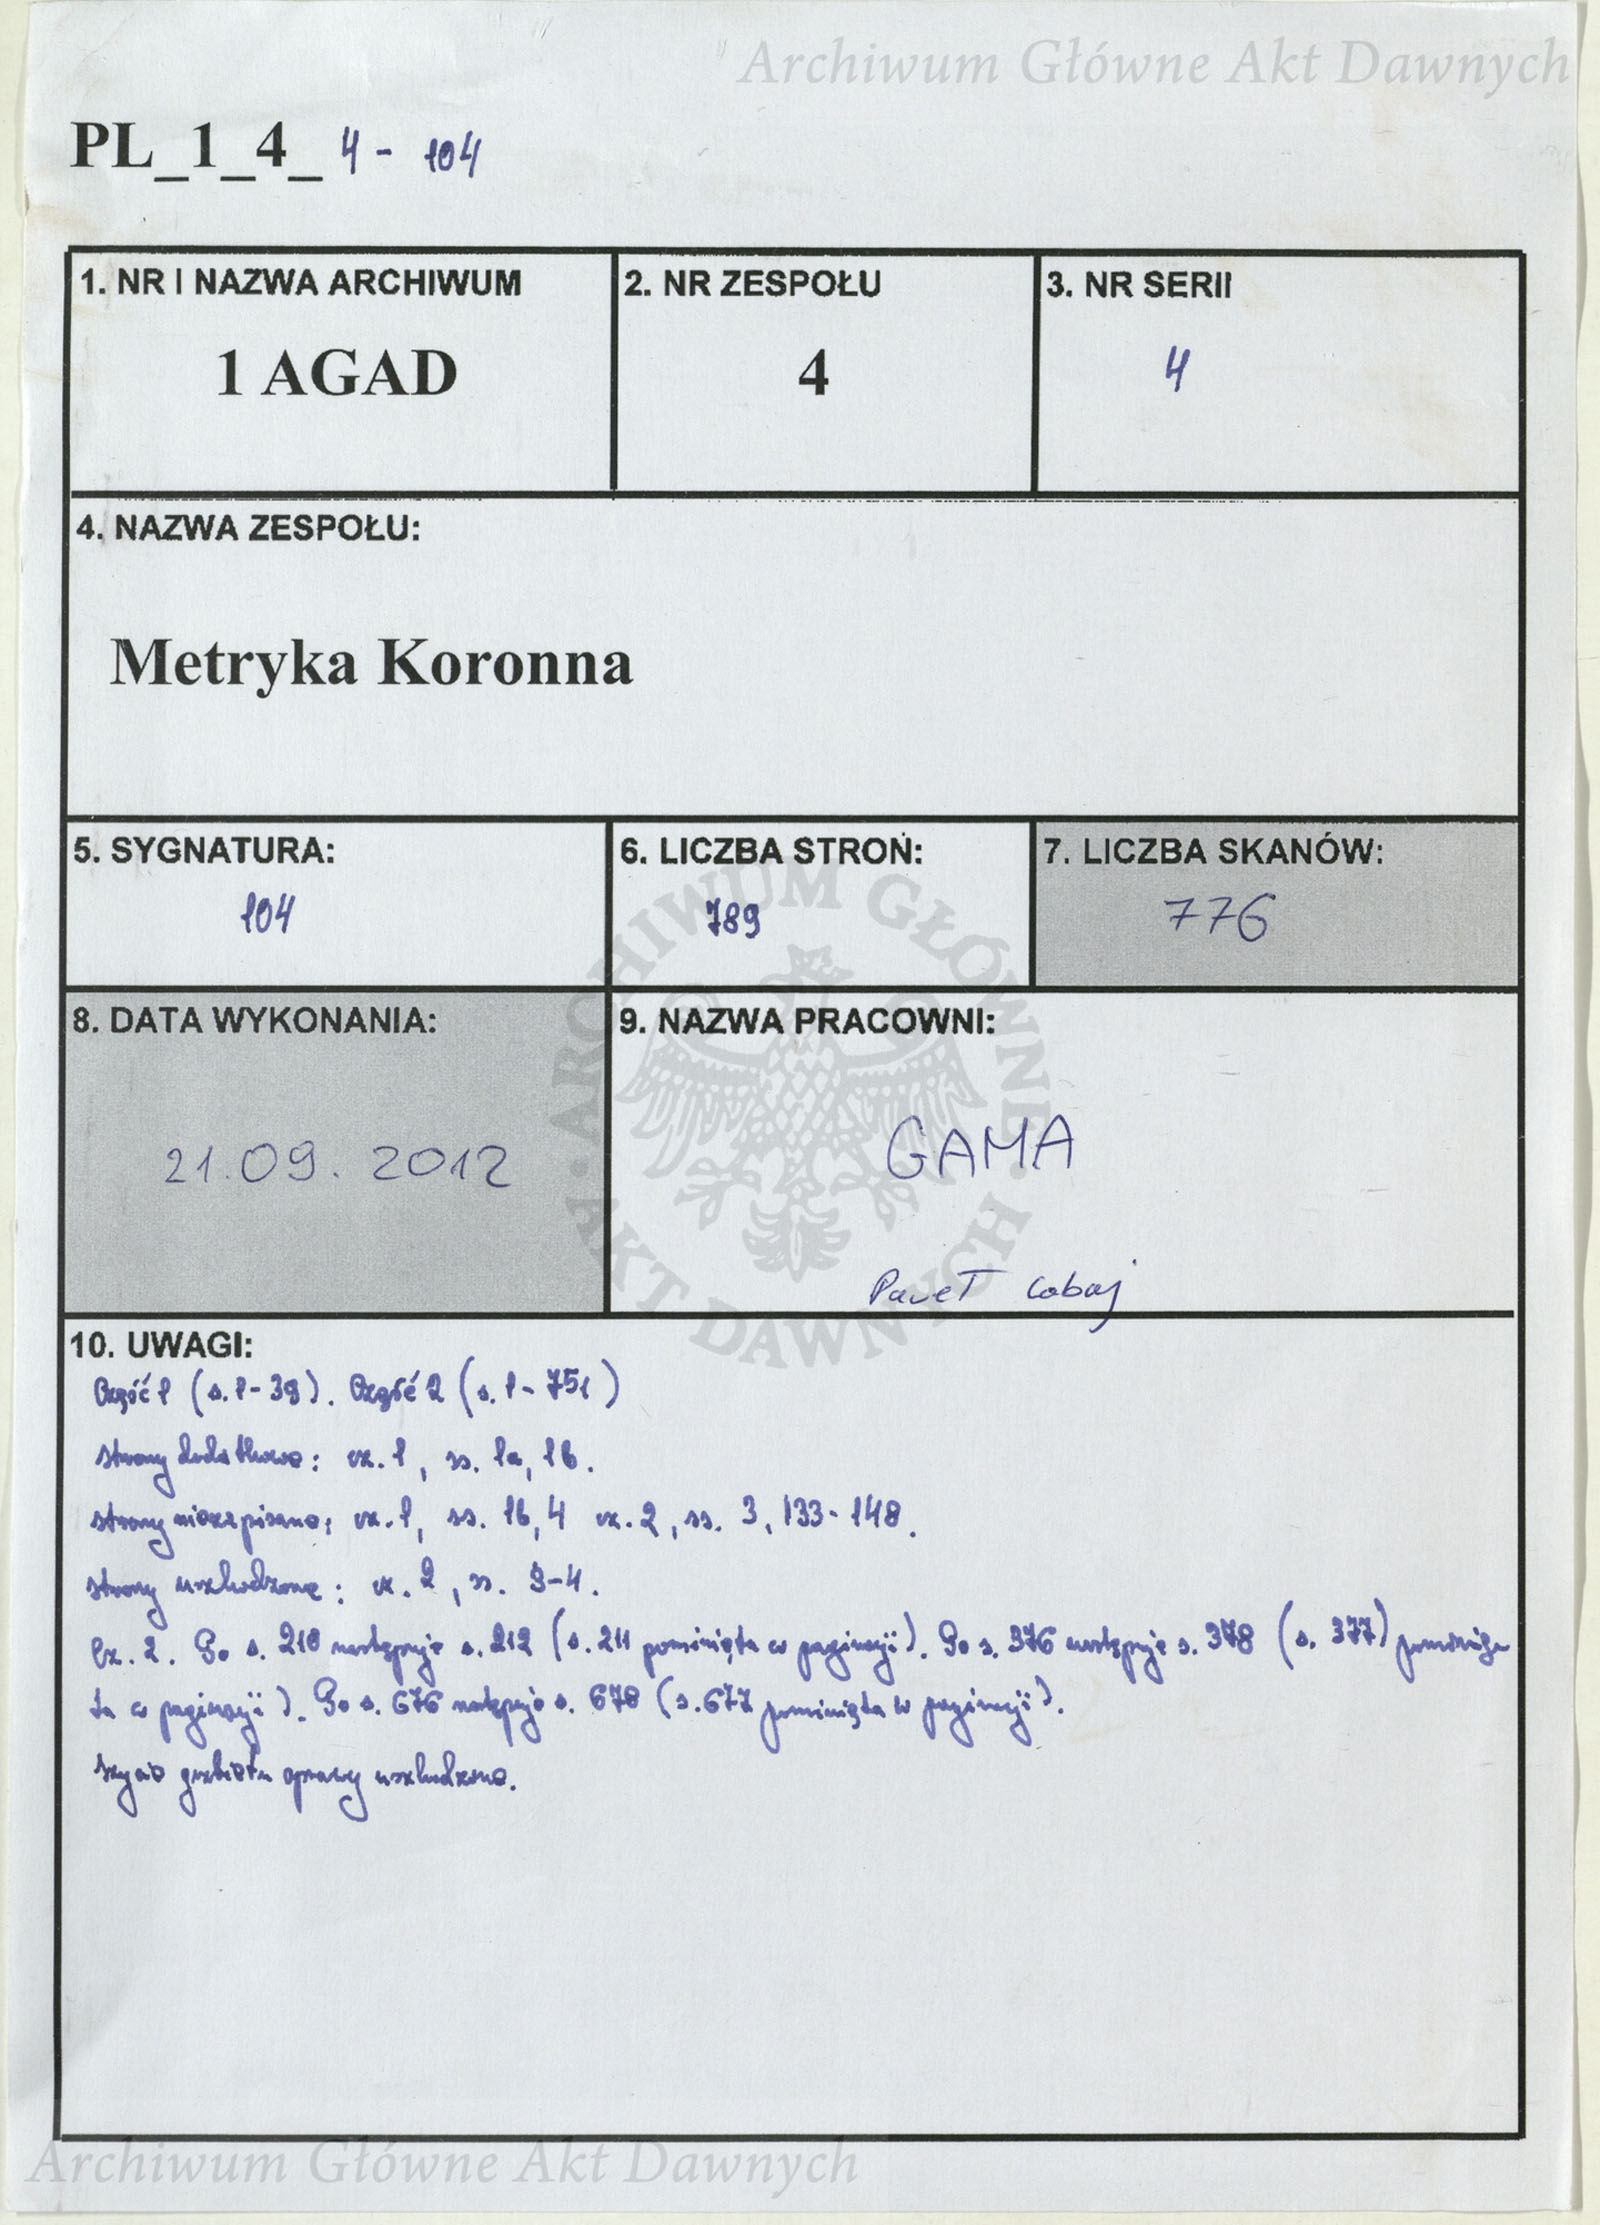 Archiwum Główne Akt Dawnych
PL_1_4_ 4 - 104
1. NR I NAZWA ARCHIWUM
1 AGAD
2. NR ZESPOŁU
4
3. NR SERII
4
4. NAZWA ZESPOŁU:
Metryka Koronna
5. SYGNATURA:
104
6. LICZBA STRON:
789
7. LICZBA SKANÓW:
776
8. DATA WYKONANIA:
21.09.2012
9. NAZWA PRACOWNI:
GAMA
Paweł
ARCHIWUM GŁÓWNE · AKT DAWNYCH ·
10. UWAGI:
Część 1 (s. 1-39). Część 2 (s. 1-751)
strony dodatkowe: cz. 1, ss. 1a, 1b.
strony niezapisane: cz. 1, ss. 1b, 4 cz. 2, ss. 3, 133-148.
strony uszkodzone: cz. 2, ss. 3-4.
Cz. 2. Po s. 210 następuje s. 212 (s. 211 pominięta w paginacji). Po s. 376 następuje s. 378 (s. 377) pominię
ta w paginacji). Po s. 676 następuje s. 678 (s. 677 pominięta w paginacji).
szycie grzbietu oprawy uszkodzone.
Archiwum Główne Akt Dawnych